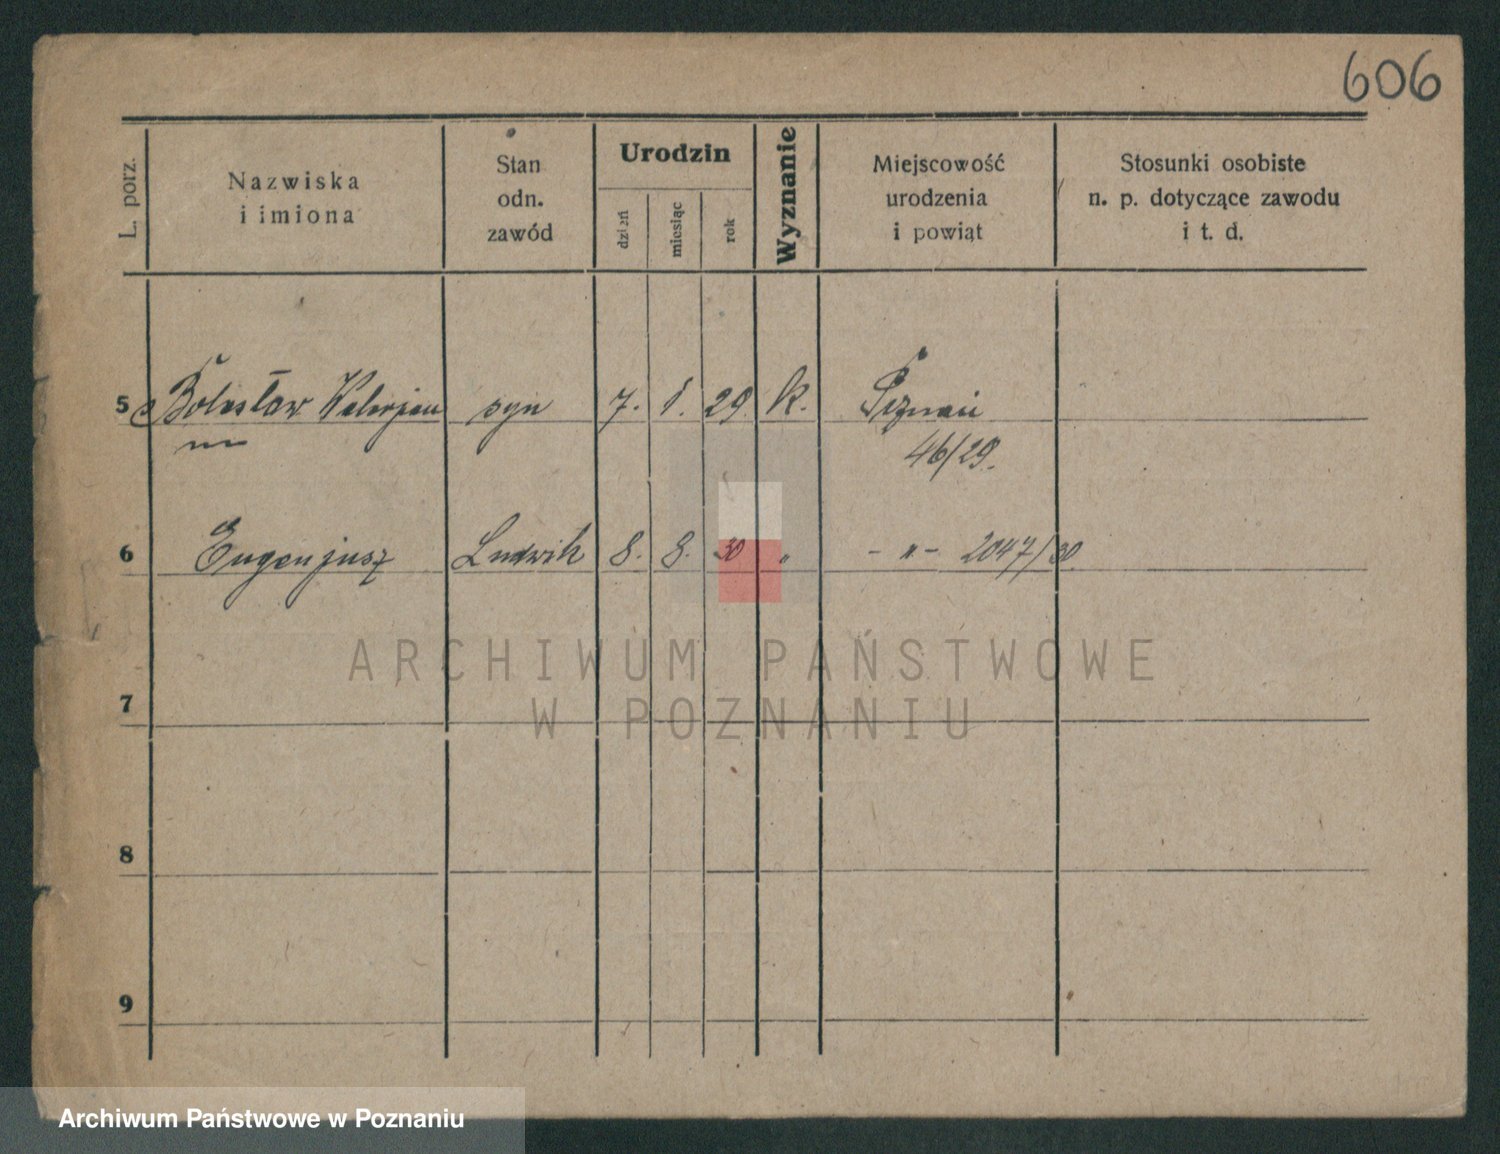 606
L. porz.
Nazwiska
i imiona
Stan
odn.
zawód
Urodzin
dzień
miesiąc
rok
Wyznanie
Miejscowość
urodzenia
i powiąt
Stosunki osobiste
n. p. dotyczące zawodu
i t. d.
5 Bolesław Walerjan syn 7. 1. 29. k. Poznań
46/29.
6 Eugenjusz Ludwik 8. 8. 30 „ - „ - 2047/30
ARCHIWUM PAŃSTWOWE
W POZNANIU
7
8
9
Archiwum Państwowe w Poznaniu